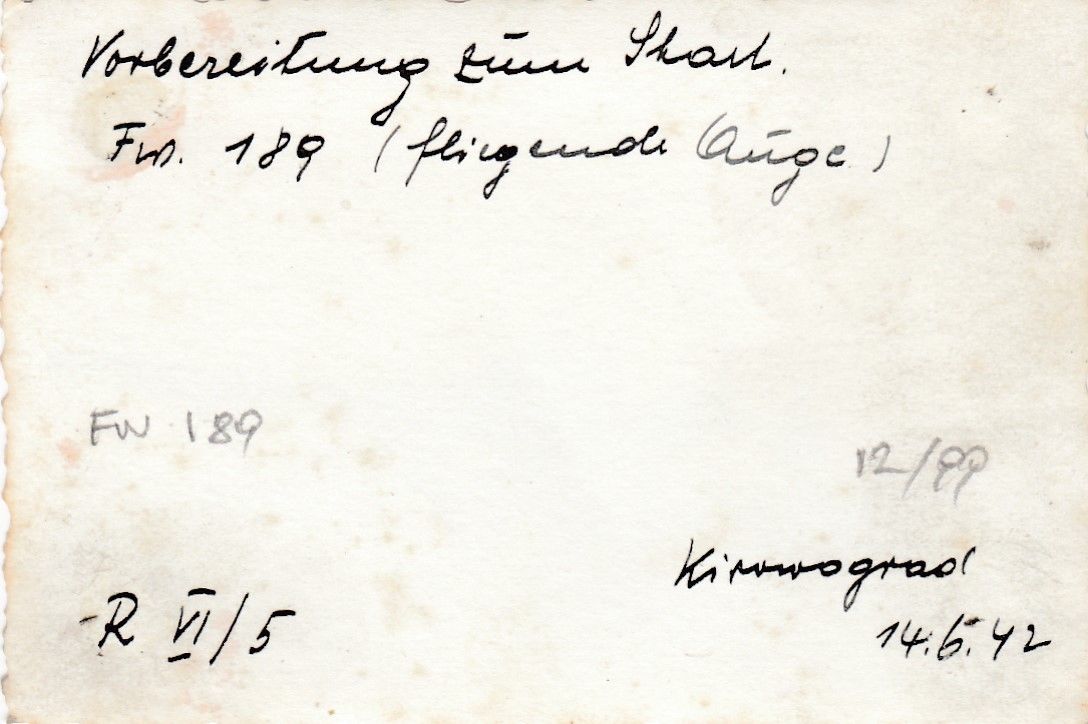 Vorbereitung zum Start.
Fw. 189 (fliegende Auge)
Fw 189
12/99
Kirowograd
R VI/5
14.6.42